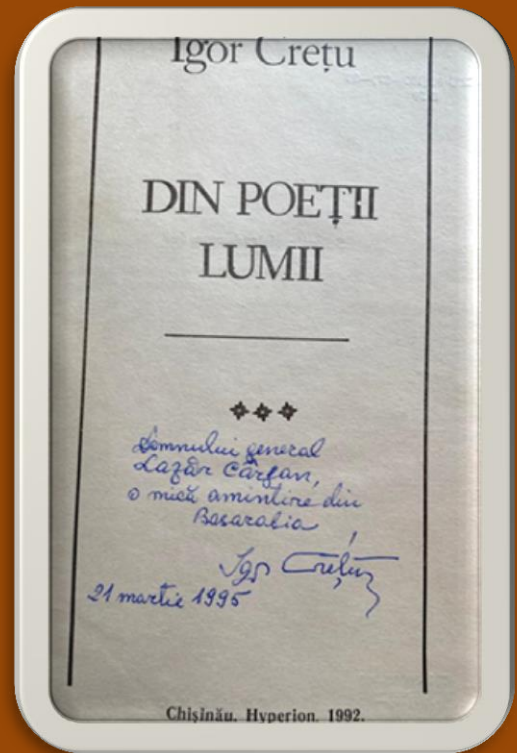 Igor Crețu
DIN POEȚII
LUMII
Domnului general
Lazăr Cârjan,
o mică amintire din
Basarabia
Igor Crețu
21 martie 1995
Chișinău. Hyperion. 1992.